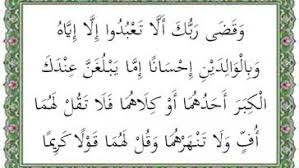 وَقَضَى رَبُّكَ أَلَّا تَعْبُدُوا إِلَّا إِيَّاهُ
وَبِالْوَالِدَيْنِ إِحْسَانًا إِمَّا يَبْلُغَنَّ عِنْدَكَ
الْكِبَرَ أَحَدُهُمَا أَوْ كِلَاهُمَا فَلَا تَقُلْ لَهُمَا
أُفٍّ وَلَا تَنْهَرْهُمَا وَقُلْ لَهُمَا قَوْلًا كَرِيمًا